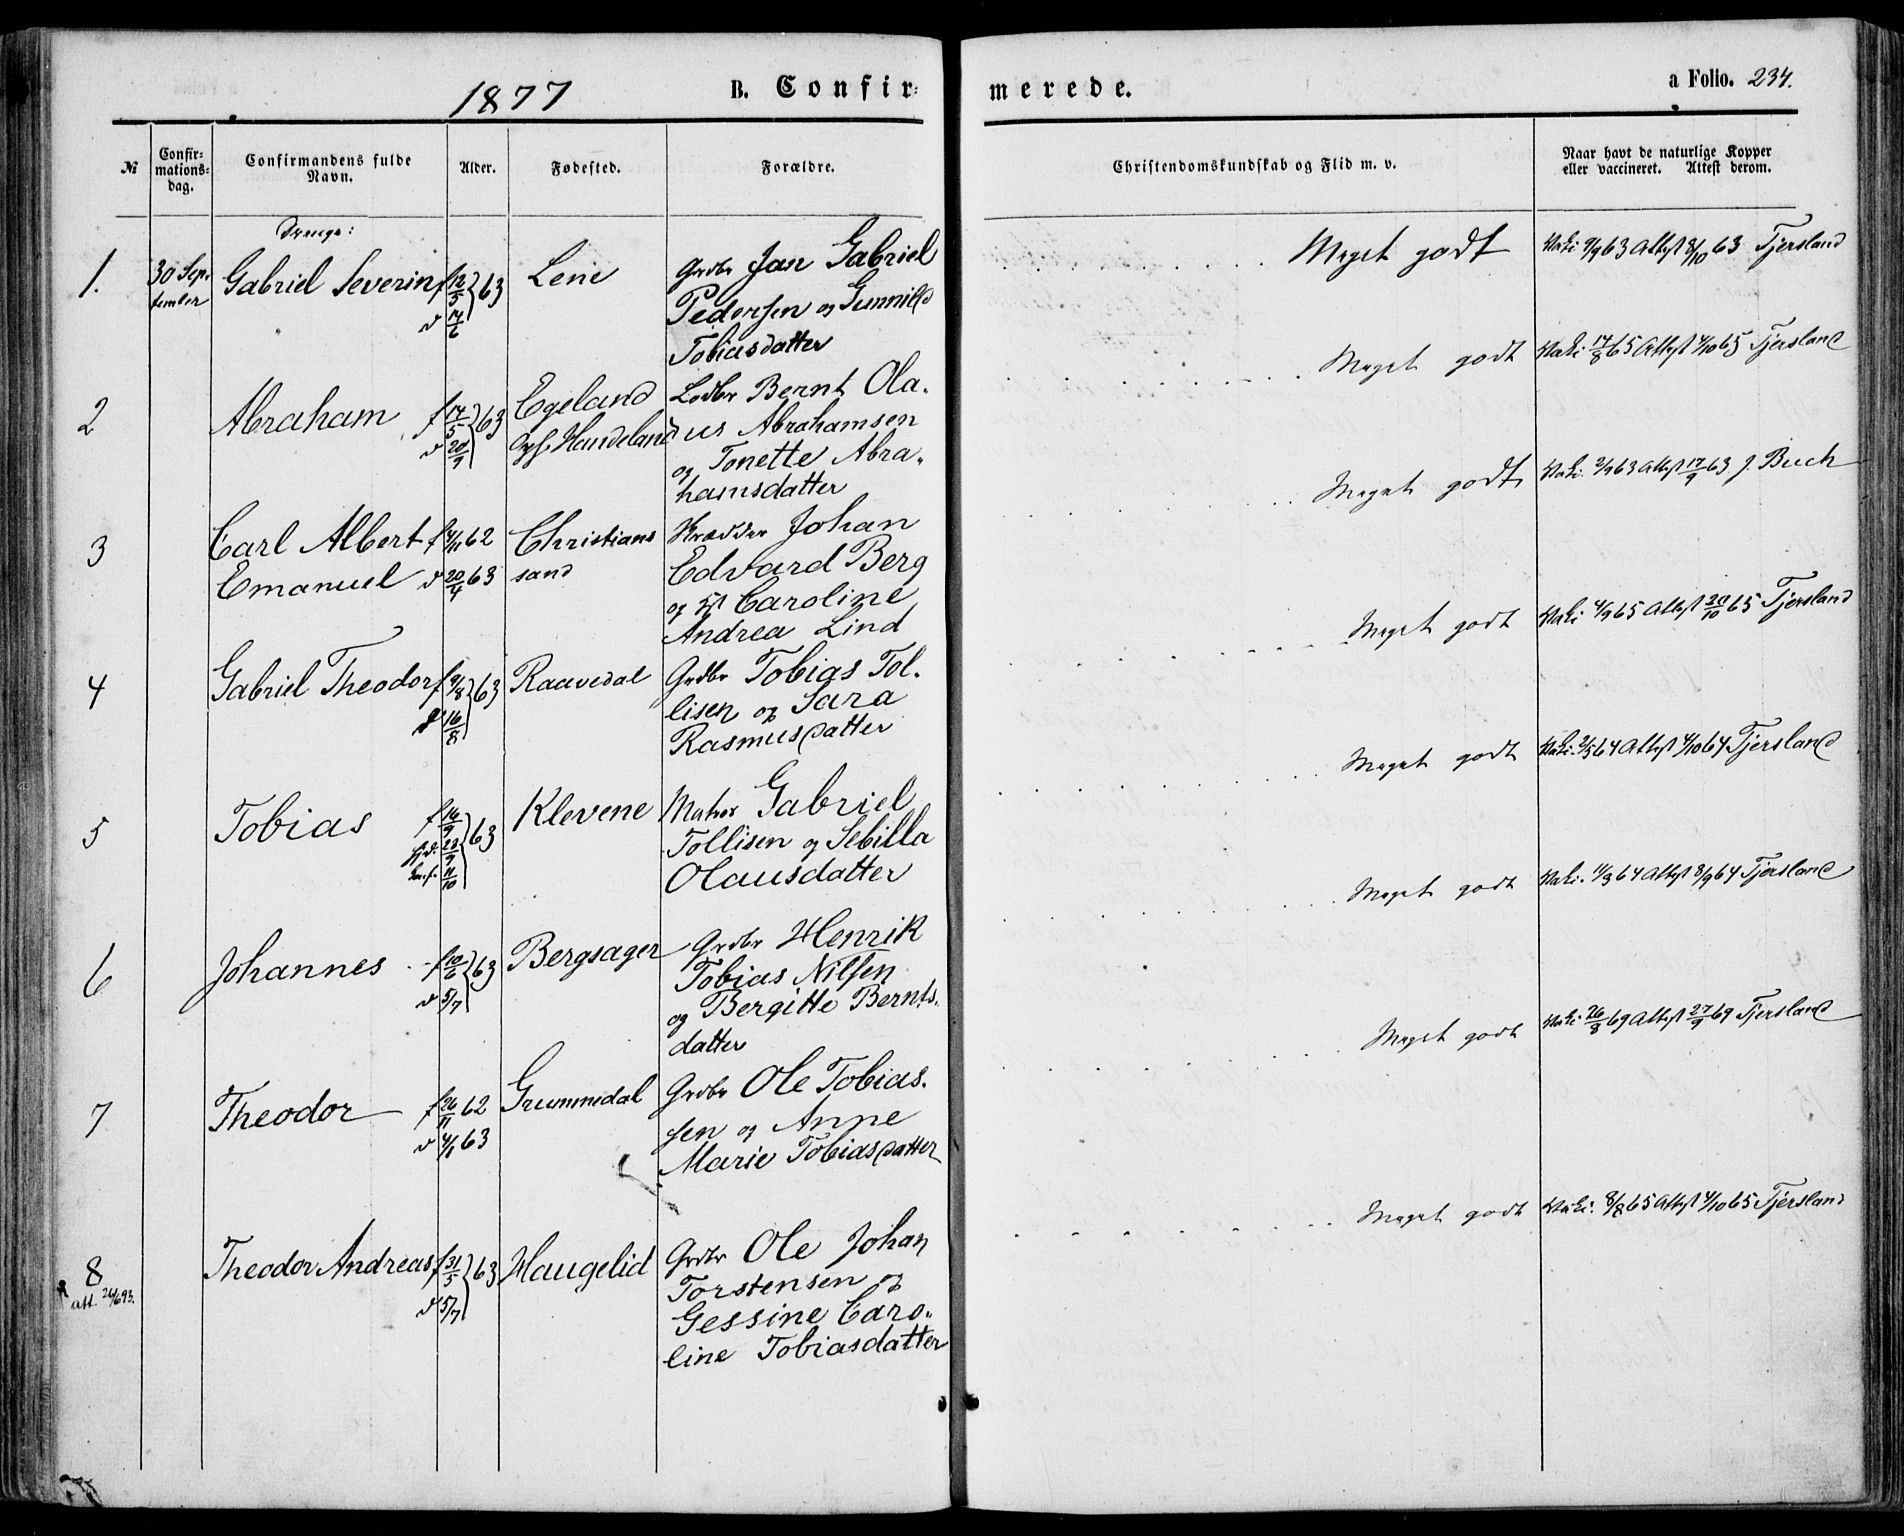 1877 B. Confir- merede. a Folio. 234.
№ Confir-mations-dag. Confirmandens fulde Navn. Alder. Fødested. Forældre. Christendomskundskab og Flid m. v. Naar havt de naturlige Kopper eller vaccineret. Attest derom.
Drenge:
1. 30 Sep- Gabriel Severin f 12/5 } 63 Lene Grdbr Jan Gabriel Meget godt Vaki 9/9 63 Attest 8/10 63 Tjersland
tember d 14/6 Pedersen og Gunnild
Tobiasdatter
2 Abraham f 17/5 } 63 Egeland Lodbr Bernt Ola- Meget godt Vaki 17/8 65 Attest 4/10 65 Tjersland
d 20/9 Haudeland us Abrahamsen
og Tonette Abra-
hamsdatter
3 Carl Albert f 4/11 62 Christians Skrædder Johan Meget godt Vaki. 2/9 63 Attest 17/9 63 J. Buch
Emanuel d 20/4 63 sand Edvard Berg
og H Caroline
Andrea Lind
4 Gabriel Theodor f 9/8 } 63 Raavedal Grdbr Tobias Tol- Meget godt Vaki 4/9 65 Attest 20/10 65 Tjersland
d 16/8 lisen og Sara
Rasmusdatter
5 Tobias f 14/9 } 63 Klevene Matros Gabriel Meget godt Vaki. 2/5 64 Attest 4/10 64 Tjersland
hjd. 22/9 Tollisen og Sebilla
11/10 Olausdatter
6 Johannes f 10/6 } 63 Bergsager Grdbr Henrik Meget godt Vaki. 11/3 64 Attest 8/9 64 Tjersland
d 5/7 Tobias Nilsen
og Bergitte Bernts-
datter
7 Theodor f 26/11 62 Grummedal Grdbr Ole Tobias- Meget godt Vaki 26/8 69 Attest 27/9 69 Tjersland
d 4/1 63 sen og Anne
Marie Tobiasdatter
8 Theodor Andreas f 31/5 } 63 Haugelid Grdbr Ole Johan Meget godt Vaki. 8/8 65 Attest 4/10 65 Tjersland
att 26/6 93. d 5/7 Torstensen og
Gessine Caro-
line Tobiasdatter